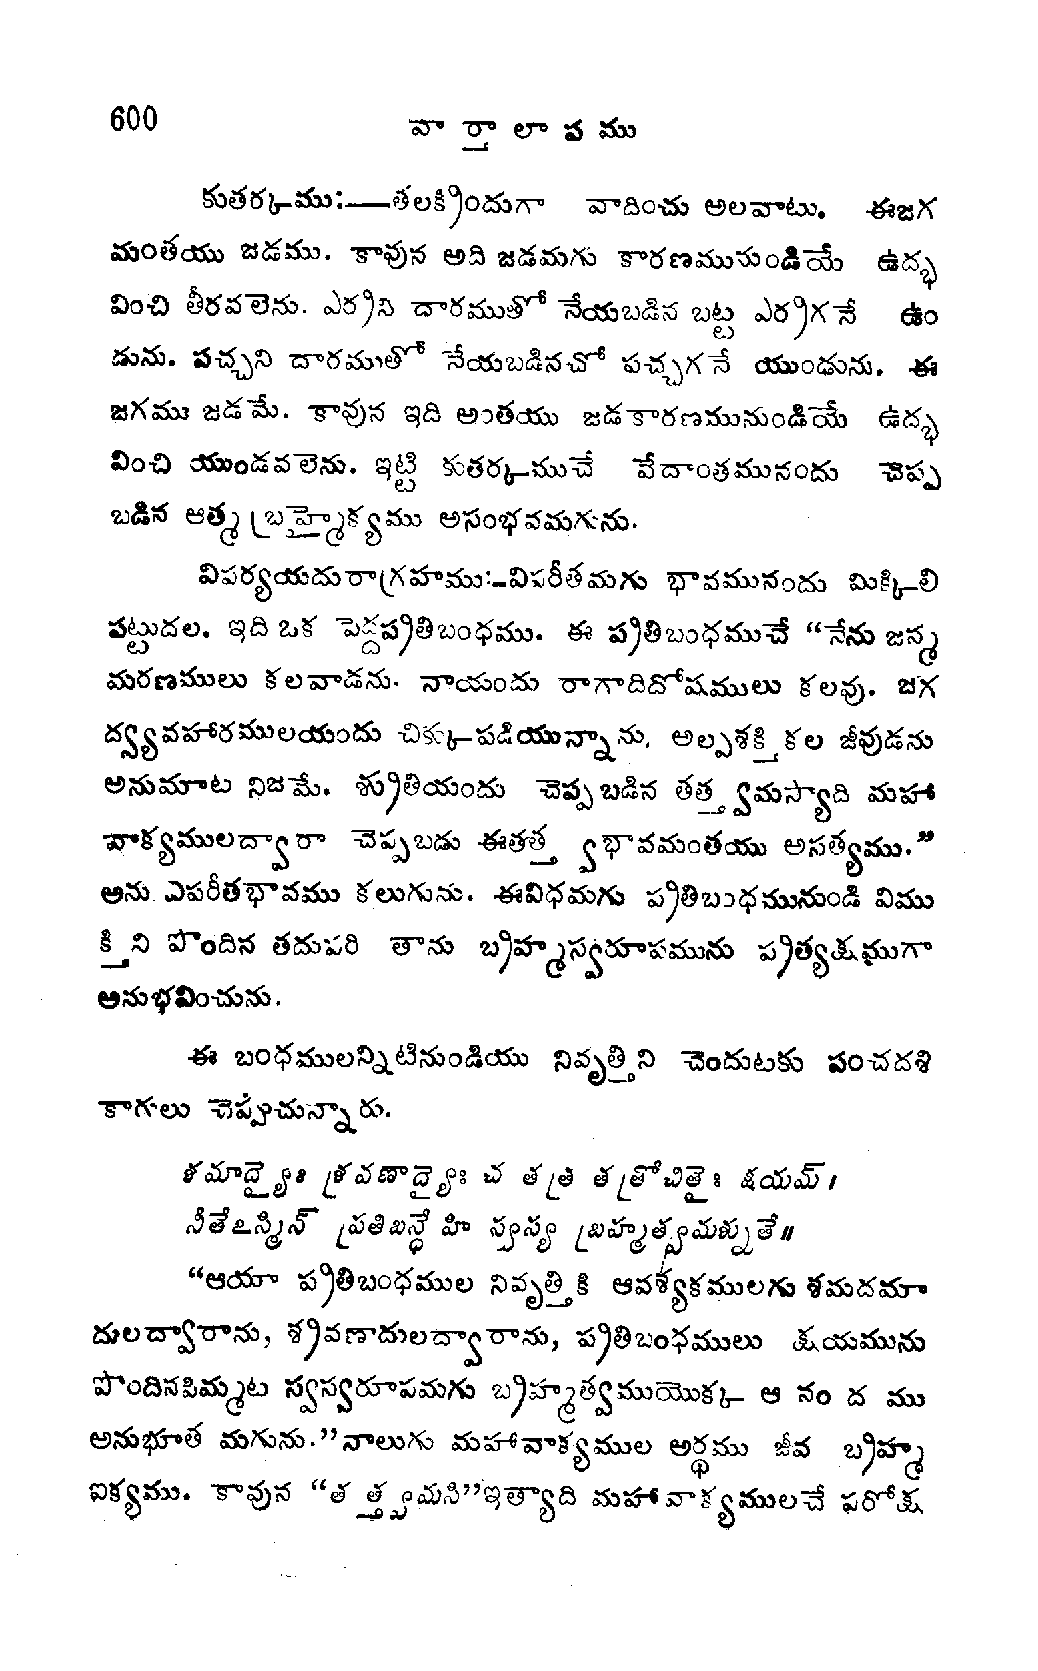 600
వార్తాలాపము
కుతర్కము:—తలక్రిందుగా వాదించు అలవాటు. ఈజగ
మంతయు జడము. కావున అది జడమగు కారణమునుండియే ఉద్భ
వించి తీరవలెను. ఎర్రని దారముతో నేయబడిన బట్ట ఎర్రగనే ఉం
డును. పచ్చని దారముతో నేయబడినచో పచ్చగనే యుండును. ఈ
జగము జడమే. కావున ఇది అంతయు జడకారణమునుండియే ఉద్భ
వించి యుండవలెను. ఇట్టి కుతర్కముచే వేదాంతమునందు చెప్ప
బడిన ఆత్మ బ్రహ్మైక్యము అసంభవమగును.
విపర్యయదురాగ్రహము:-విపరీతమగు భావమునందు మిక్కిలి
పట్టుదల. ఇది ఒక పెద్దప్రతిబంధము. ఈ ప్రతిబంధముచే “నేను జన్మ
మరణములు కలవాడను. నాయందు రాగాదిదోషములు కలవు. జగ
ద్వ్యవహారములయందు చిక్కుపడియున్నాను, అల్పశక్తి కల జీవుడను
అనుమాట నిజమే. శ్రుతియందు చెప్పబడిన తత్త్వమస్యాది మహా
వాక్యములద్వారా చెప్పబడు ఈతత్త్వభావమంతయు అసత్యము.”
అను విపరీతభావము కలుగును. ఈవిధమగు ప్రతిబంధమునుండి విము
క్తిని పొందిన తదుపరి తాను బ్రహ్మస్వరూపమును ప్రత్యక్షముగా
అనుభవించును.
ఈ బంధములన్నిటినుండియు నివృత్తిని చెందుటకు పంచదశి
కారులు చెప్పుచున్నారు.
శమాద్యైః శ్రవణాద్యైః చ తత్ర తత్రోచితైః క్షయమ్।
నీతేఽస్మిన్ ప్రతిబన్ధే హి స్వస్య బ్రహ్మత్వమశ్నుతే॥
“ఆయా ప్రతిబంధముల నివృత్తికి ఆవశ్యకములగు శమదమా
దులద్వారాను, శ్రవణాదులద్వారాను, ప్రతిబంధములు క్షయమును
పొందినపిమ్మట స్వస్వరూపమగు బ్రహ్మత్వముయొక్క ఆనందము
అనుభూత మగును.”నాలుగు మహావాక్యముల అర్థము జీవ బ్రహ్మ
ఐక్యము. కావున “తత్త్వమసి”ఇత్యాది మహావాక్యములచే పరోక్ష